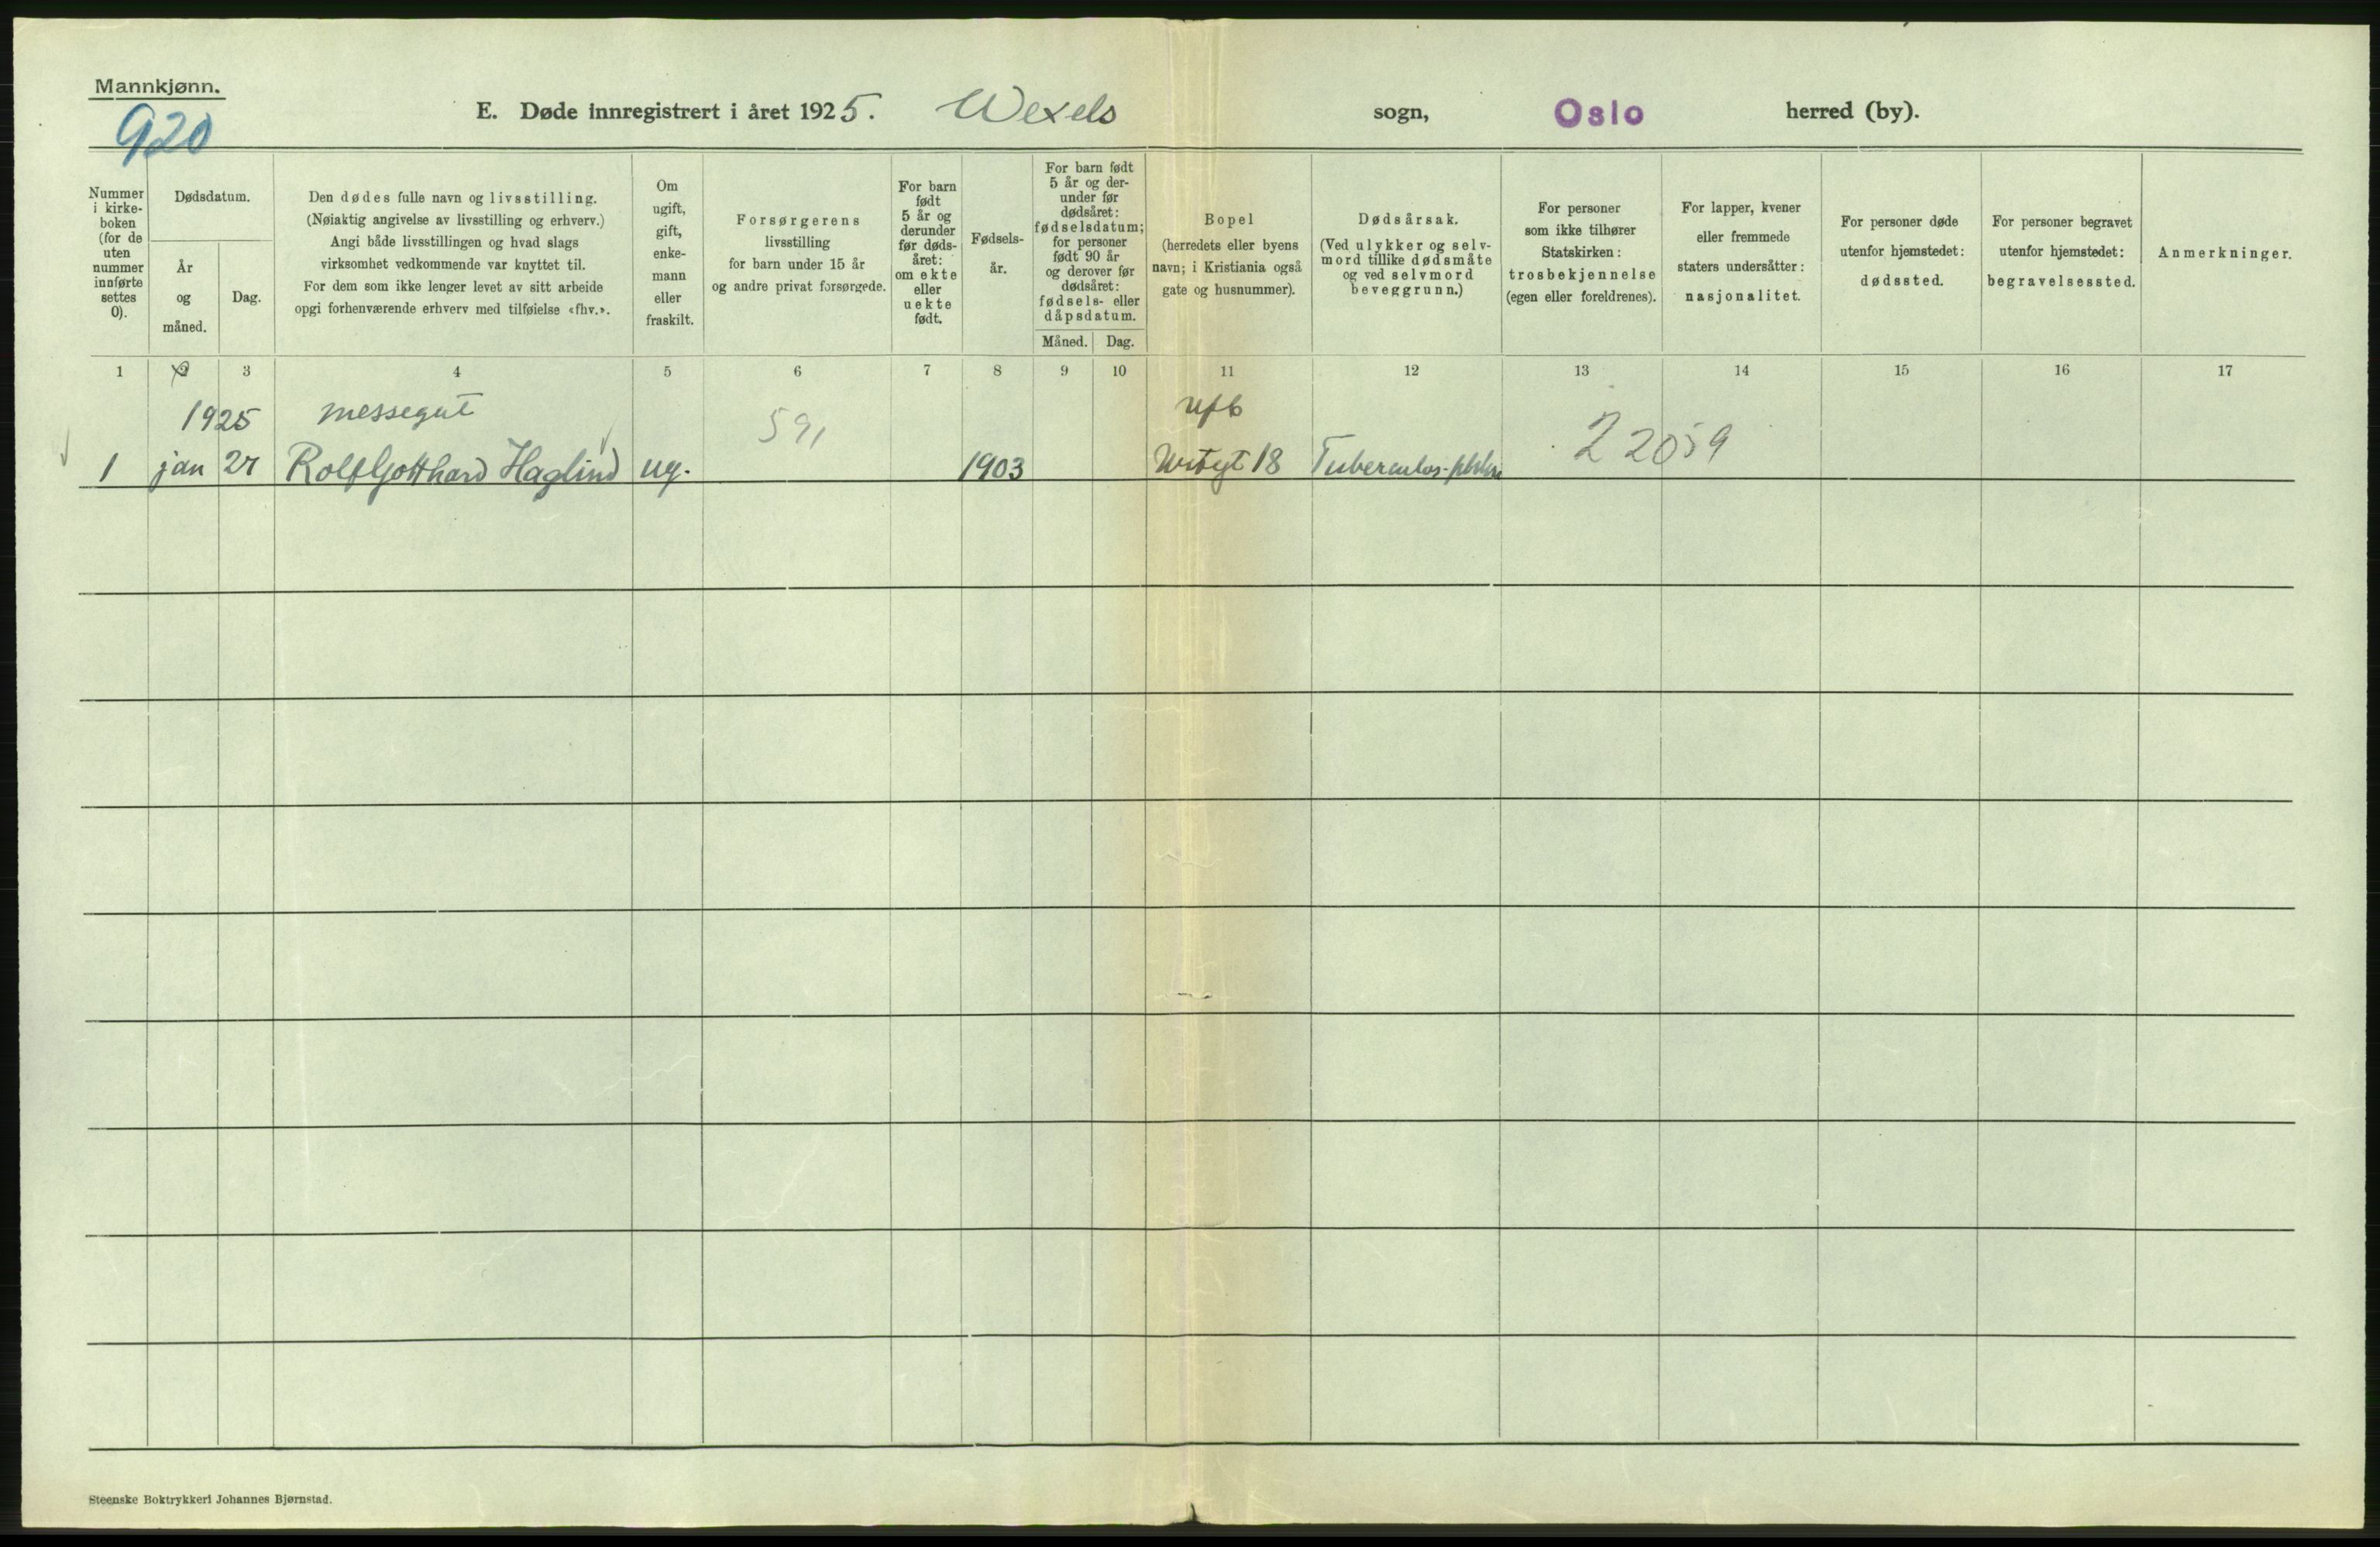 Mannkjønn.
920
E. Døde innregistrert i året 1925. Wexels sogn, Oslo herred (by).
Nummer
i kirke-
boken
(for de
uten
nummer
innførte
settes
0).
Dødsdatum.
År
og
måned.
Dag.
Den dødes fulle navn og livsstilling.
(Nøiaktig angivelse av livsstilling og erhverv.)
Angi både livsstillingen og hvad slags
virksomhet vedkommende var knyttet til.
For dem som ikke lenger levet av sitt arbeide
opgi forhenværende erhverv med tilføielse «fhv.».
Om
ugift,
gift,
enke-
mann
eller
fraskilt.
Forsørgerens
livsstilling
for barn under 15 år
og andre privat forsørgede.
For barn
født
5 år og
derunder
før døds-
året:
om ekte
eller
uekte
født.
Fødsels-
år.
For barn født
5 år og der-
under før
dødsåret:
fødselsdatum;
for personer
født 90 år
og derover før
dødsåret:
fødsels- eller
dåpsdatum.
Måned. Dag.
Bopel
(herredets eller byens
navn; i Kristiania også
gate og husnummer).
Dødsårsak.
(Ved ulykker og selv-
mord tillike dødsmåte
og ved selvmord
beveggrunn.)
For personer
som ikke tilhører
Statskirken:
trosbekjennelse
(egen eller foreldrenes).
For lapper, kvener
eller fremmede
staters undersåtter:
nasjonalitet.
For personer døde
utenfor hjemstedet:
dødssted.
For personer begravet
utenfor hjemstedet:
begravelsessted.
Anmerkninger.
1 2 3 4 5 6 7 8 9 10 11 12 13 14 15 16 17
1925 messegut 591 22059
1 jan 27 Rolf Gotthard Haglind ug. 1903 18 Tuberculos.
Steenske Boktrykkeri Johannes Bjørnstad.